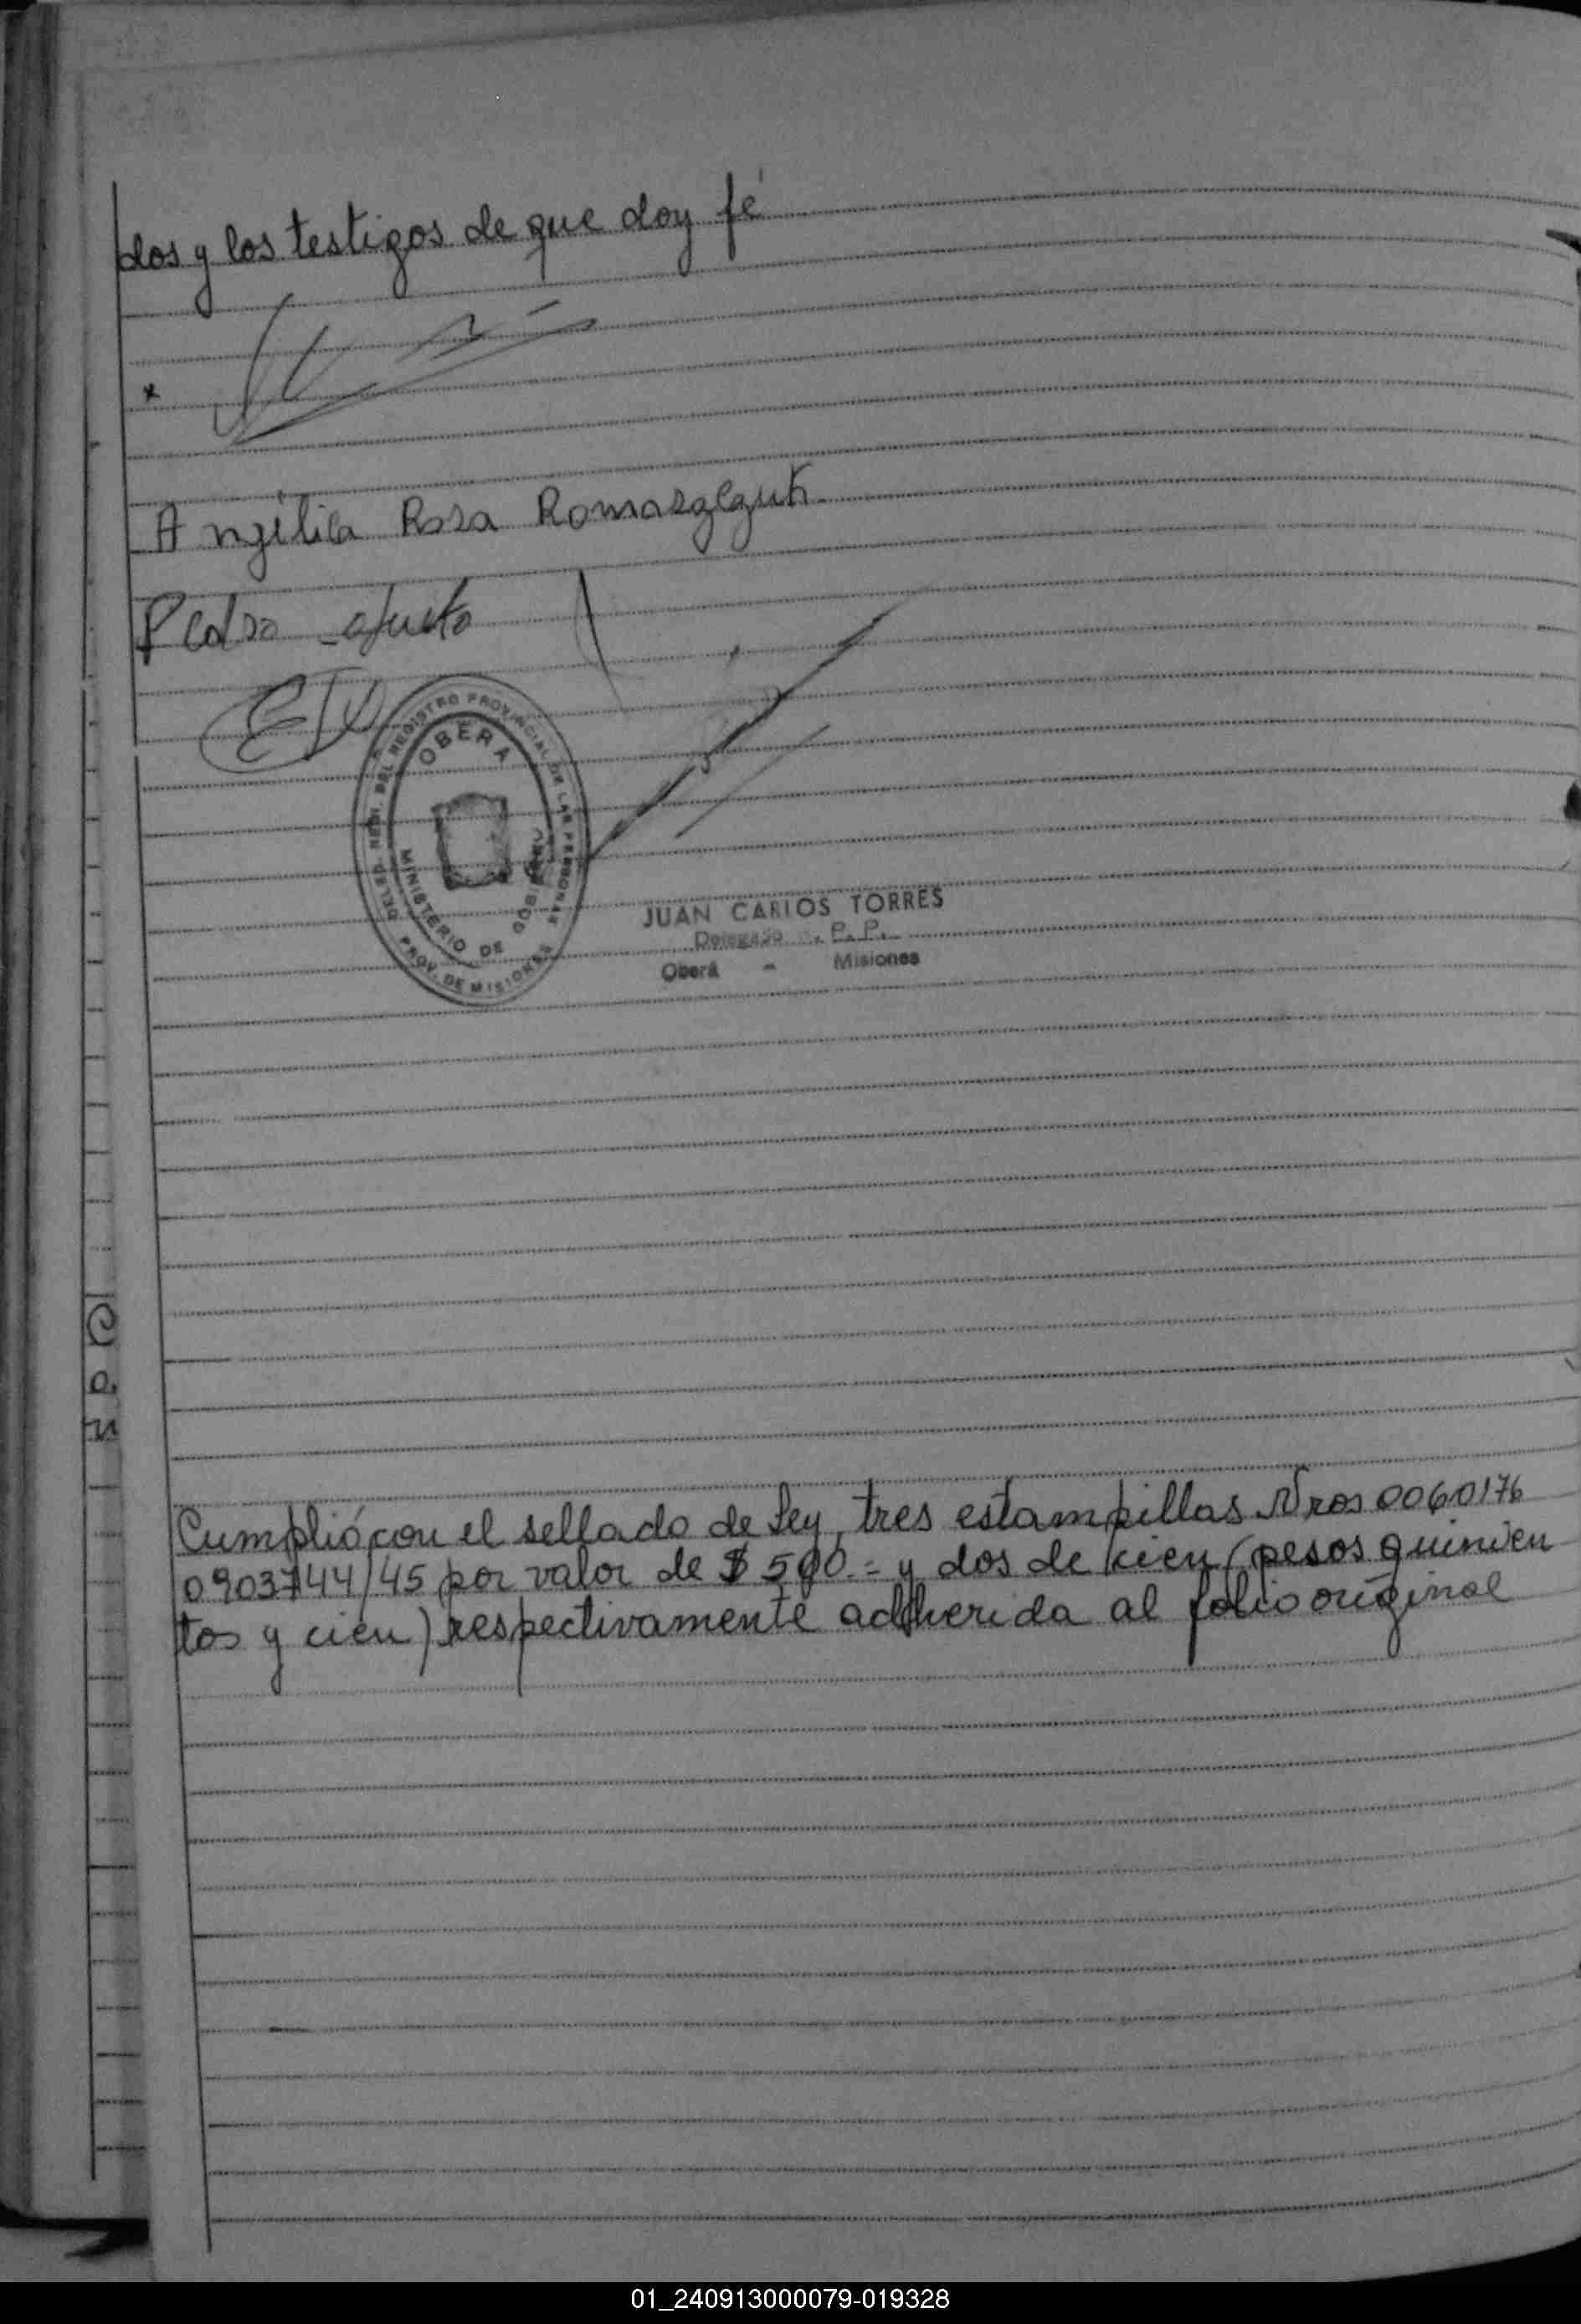 dos y los testigos de que doy fé
x
Angélica Rosa Romaszezuk
Pedro
DELEG. REGI. DEL REGISTRO PROVINCIAL DE LAS PERSONAS
OBERA
MINISTERIO DE GOBIERNO
PROV. DE MISIONES
JUAN CARLOS TORRES
Delegado R. P. P.
Oberá - Misiones
Cumplió con el sellado de Ley, tres estampillas Nros 0060176
0903744/45 por valor de $ 500.= y dos de cien (pesos quinien
tos y cien) respectivamente adherida al folio original
01_240913000079-019328